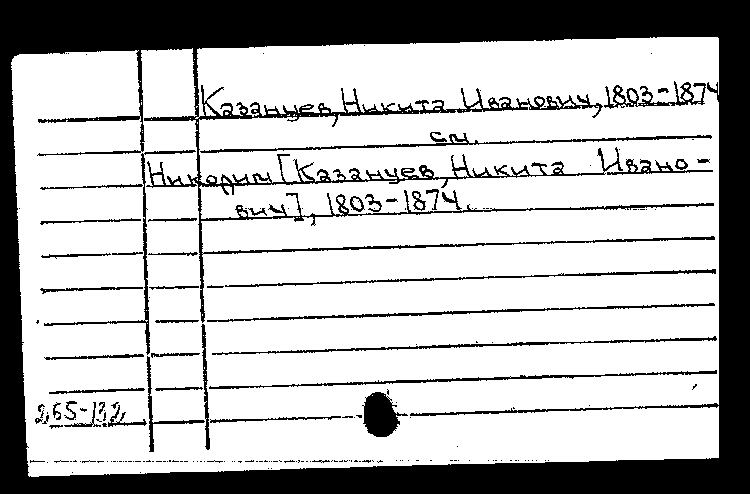 Казанцев, Никита Иванович, 1803-1874
см.
Никодим [Казанцев, Никита Ивано-
вич], 1803-1874.
265-132